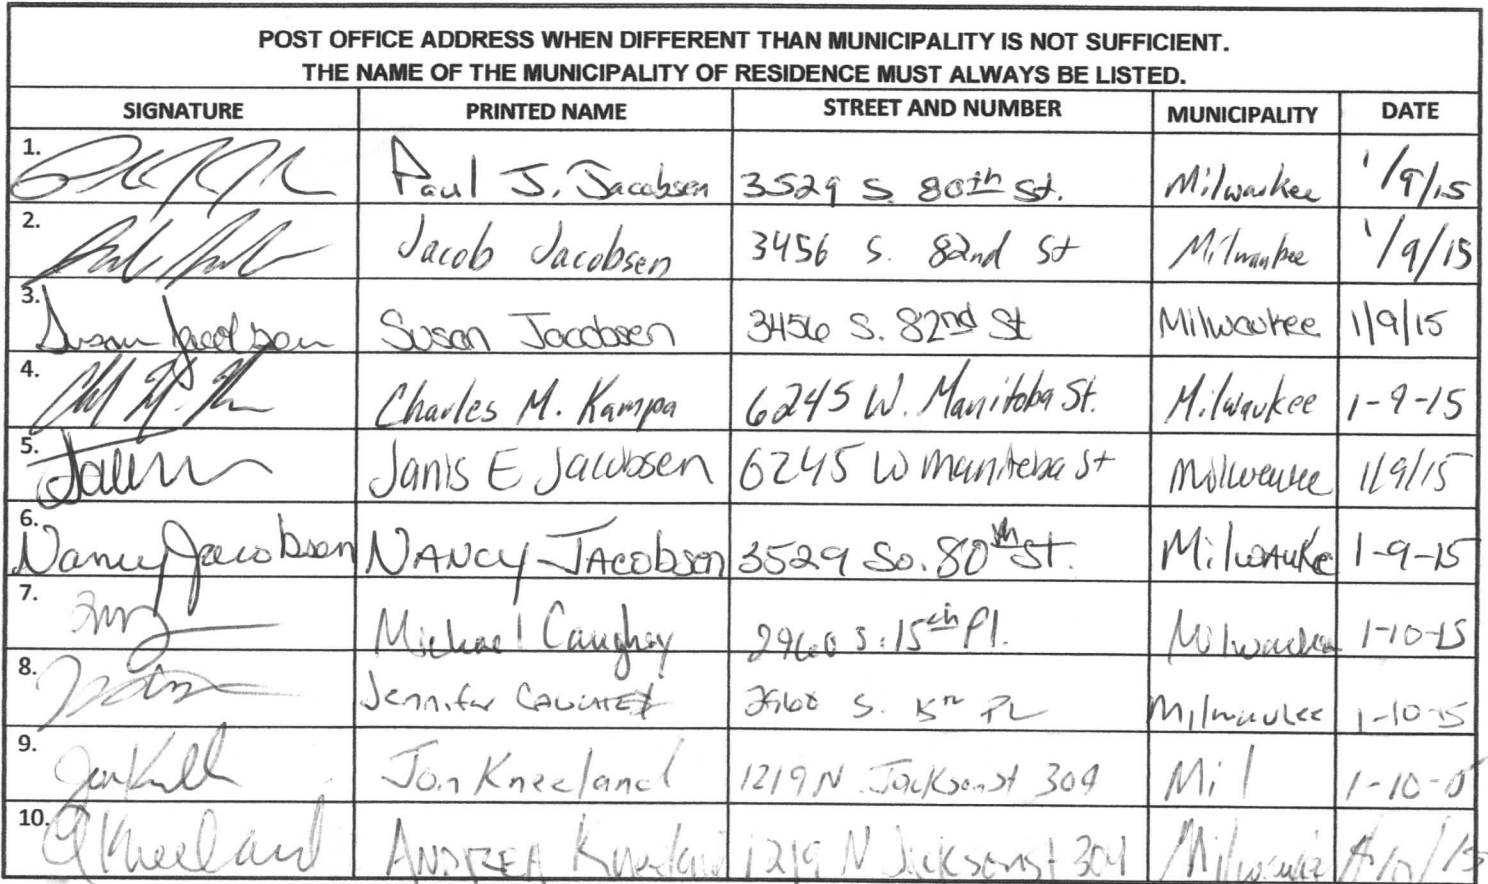 POST OFFICE ADDRESS WHEN DIFFERENT THAN MUNICIPALITY IS NOT SUFFICIENT.
THE NAME OF THE MUNICIPALITY OF RESIDENCE MUST ALWAYS BE LISTED.
SIGNATURE PRINTED NAME STREET AND NUMBER MUNICIPALITY DATE
1. Paul J. Jacobsen 3529 S. 80th St. Milwaukee 1/9/15
2. Jacob Jacobsen 3456 S. 82nd St Milwaukee 1/9/15
3. Susan Jacobsen Susan Jacobsen 3456 S. 82nd St Milwaukee 1/9/15
4. Charles M. Kampa 6245 W. Manitoba St. Milwaukee 1-9-15
5. Janis E Jacobsen 6245 W Manitoba St 1/9/15
6. Nancy Jacobsen NANCY JACobsen 3529 So. 80th St. MilwAuke 1-9-15
7. Michael Caughey 2960 S. 15th Pl. Milwaukee 1-10-15
8. Jennifer 2960 S. 15th PL Milwaukee 1-10-15
9. Jon Kneeland 1219 N Jackson st 304 Mil 1-10-15
10. A Kneeland ANDREA Kneeland 1219 N Jackson st 304 Milwaukee